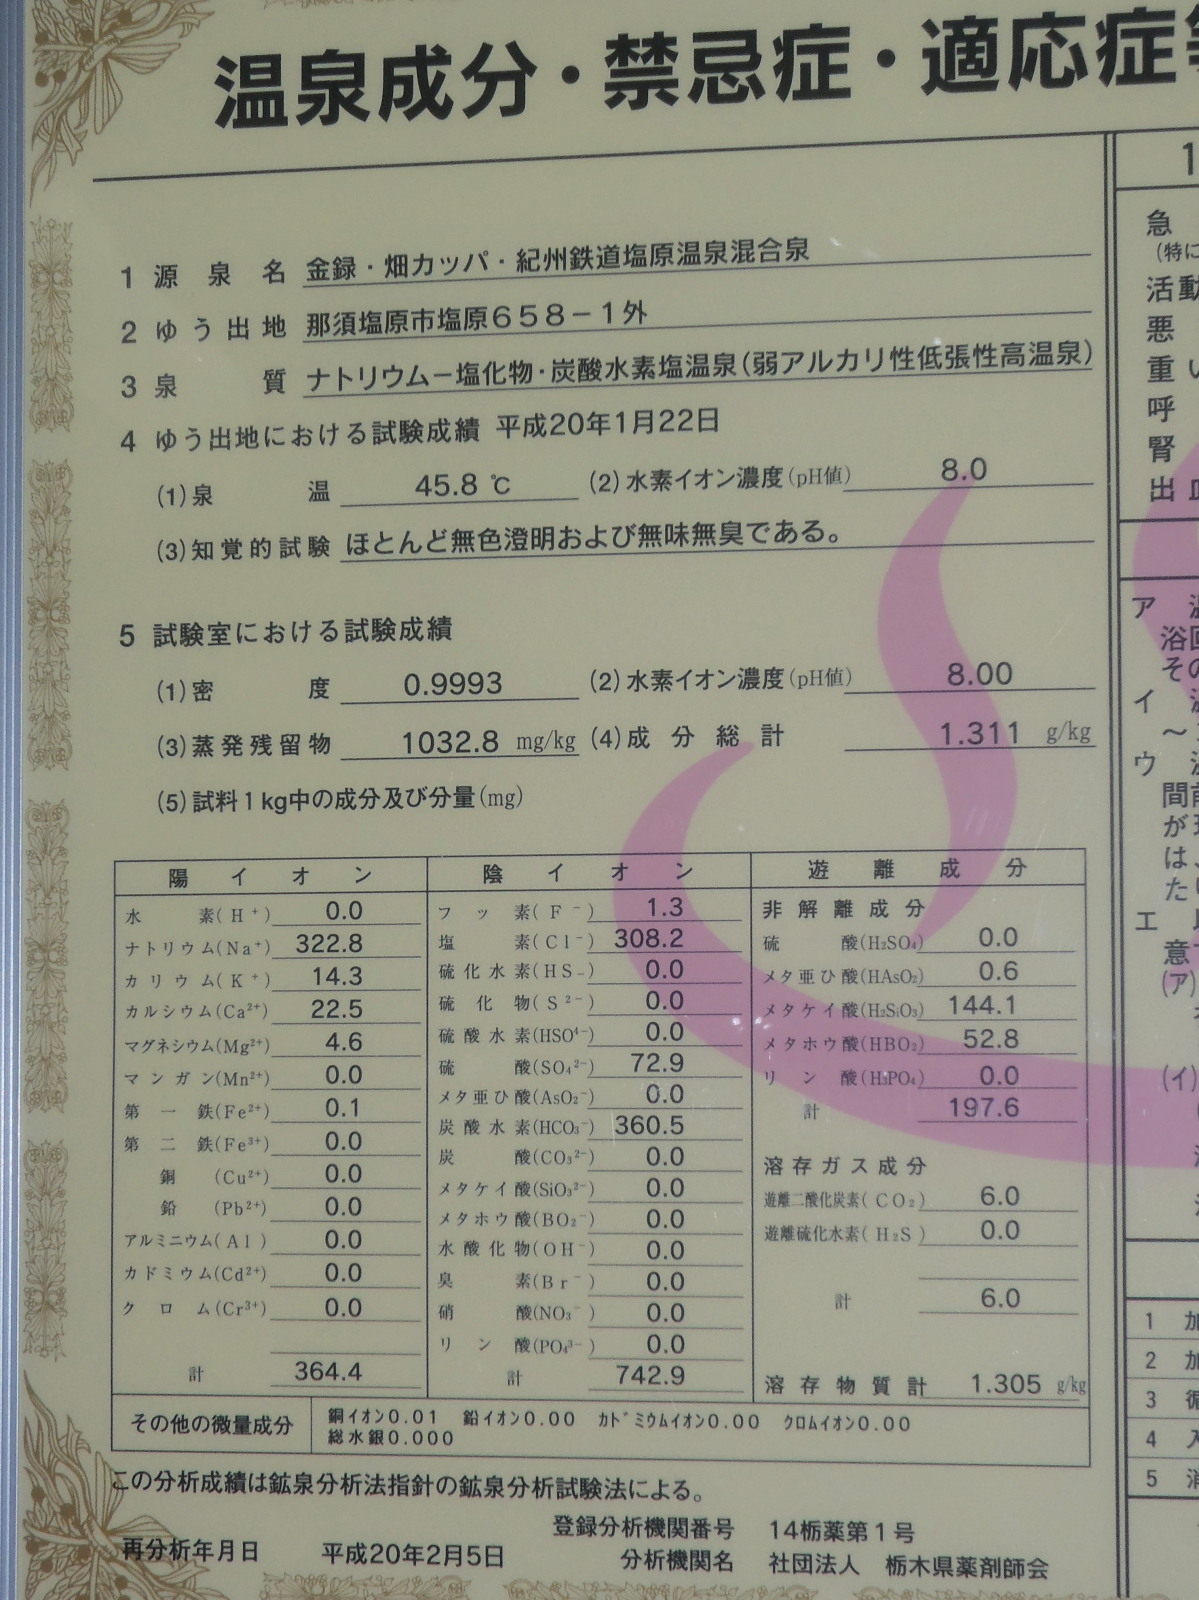 温泉成分・禁忌症・適応症等
1 源泉名 金録・畑カッパ・紀州鉄道塩原温泉混合泉
2 ゆう出地 那須塩原市塩原658－1外
3 泉質 ナトリウム－塩化物・炭酸水素塩温泉(弱アルカリ性低張性高温泉)
4 ゆう出地における試験成績 平成20年1月22日
(1)泉温 45.8 ℃ (2)水素イオン濃度(pH値) 8.0
(3)知覚的試験 ほとんど無色澄明および無味無臭である。
5 試験室における試験成績
(1)密度 0.9993 (2)水素イオン濃度(pH値) 8.00
(3)蒸発残留物 1032.8 mg/kg (4)成分総計 1.311 g/kg
(5)試料1kg中の成分及び分量(mg)
陽イオン
水素(H⁺) 0.0
ナトリウム(Na⁺) 322.8
カリウム(K⁺) 14.3
カルシウム(Ca²⁺) 22.5
マグネシウム(Mg²⁺) 4.6
マンガン(Mn²⁺) 0.0
第一鉄(Fe²⁺) 0.1
第二鉄(Fe³⁺) 0.0
銅(Cu²⁺) 0.0
鉛(Pb²⁺) 0.0
アルミニウム(Al) 0.0
カドミウム(Cd²⁺) 0.0
クロム(Cr³⁺) 0.0
計 364.4
陰イオン
フッ素(F⁻) 1.3
塩素(Cl⁻) 308.2
硫化水素(HS₋) 0.0
硫化物(S²⁻) 0.0
硫酸水素(HSO⁴⁻) 0.0
硫酸(SO₄²⁻) 72.9
メタ亜ひ酸(AsO₂⁻) 0.0
炭酸水素(HCO₃⁻) 360.5
炭酸(CO₃²⁻) 0.0
メタケイ酸(SiO₃²⁻) 0.0
メタホウ酸(BO₂⁻) 0.0
水酸化物(OH⁻) 0.0
臭素(Br⁻) 0.0
硝酸(NO₃⁻) 0.0
リン酸(PO₄³⁻) 0.0
計 742.9
遊離成分
非解離成分
硫酸(H₂SO₄) 0.0
メタ亜ひ酸(HAsO₂) 0.6
メタケイ酸(H₂SiO₃) 144.1
メタホウ酸(HBO₂) 52.8
リン酸(H₃PO₄) 0.0
計 197.6
溶存ガス成分
遊離二酸化炭素(CO₂) 6.0
遊離硫化水素(H₂S) 0.0
計 6.0
溶存物質計 1.305 g/kg
その他の微量成分 銅イオン0.01 鉛イオン0.00 カドミウムイオン0.00 クロムイオン0.00
総水銀0.000
この分析成績は鉱泉分析法指針の鉱泉分析試験法による。
登録分析機関番号 14栃薬第1号
再分析年月日 平成20年2月5日 分析機関名 社団法人 栃木県薬剤師会
1
急
(特に
活動
悪
重い
呼
腎
出血
ア 温
浴回
その
イ
～
ウ
間前
が
は、
た
エ
意
(ア)
(イ)
1 加
2 加
3 循
4 入
5 消